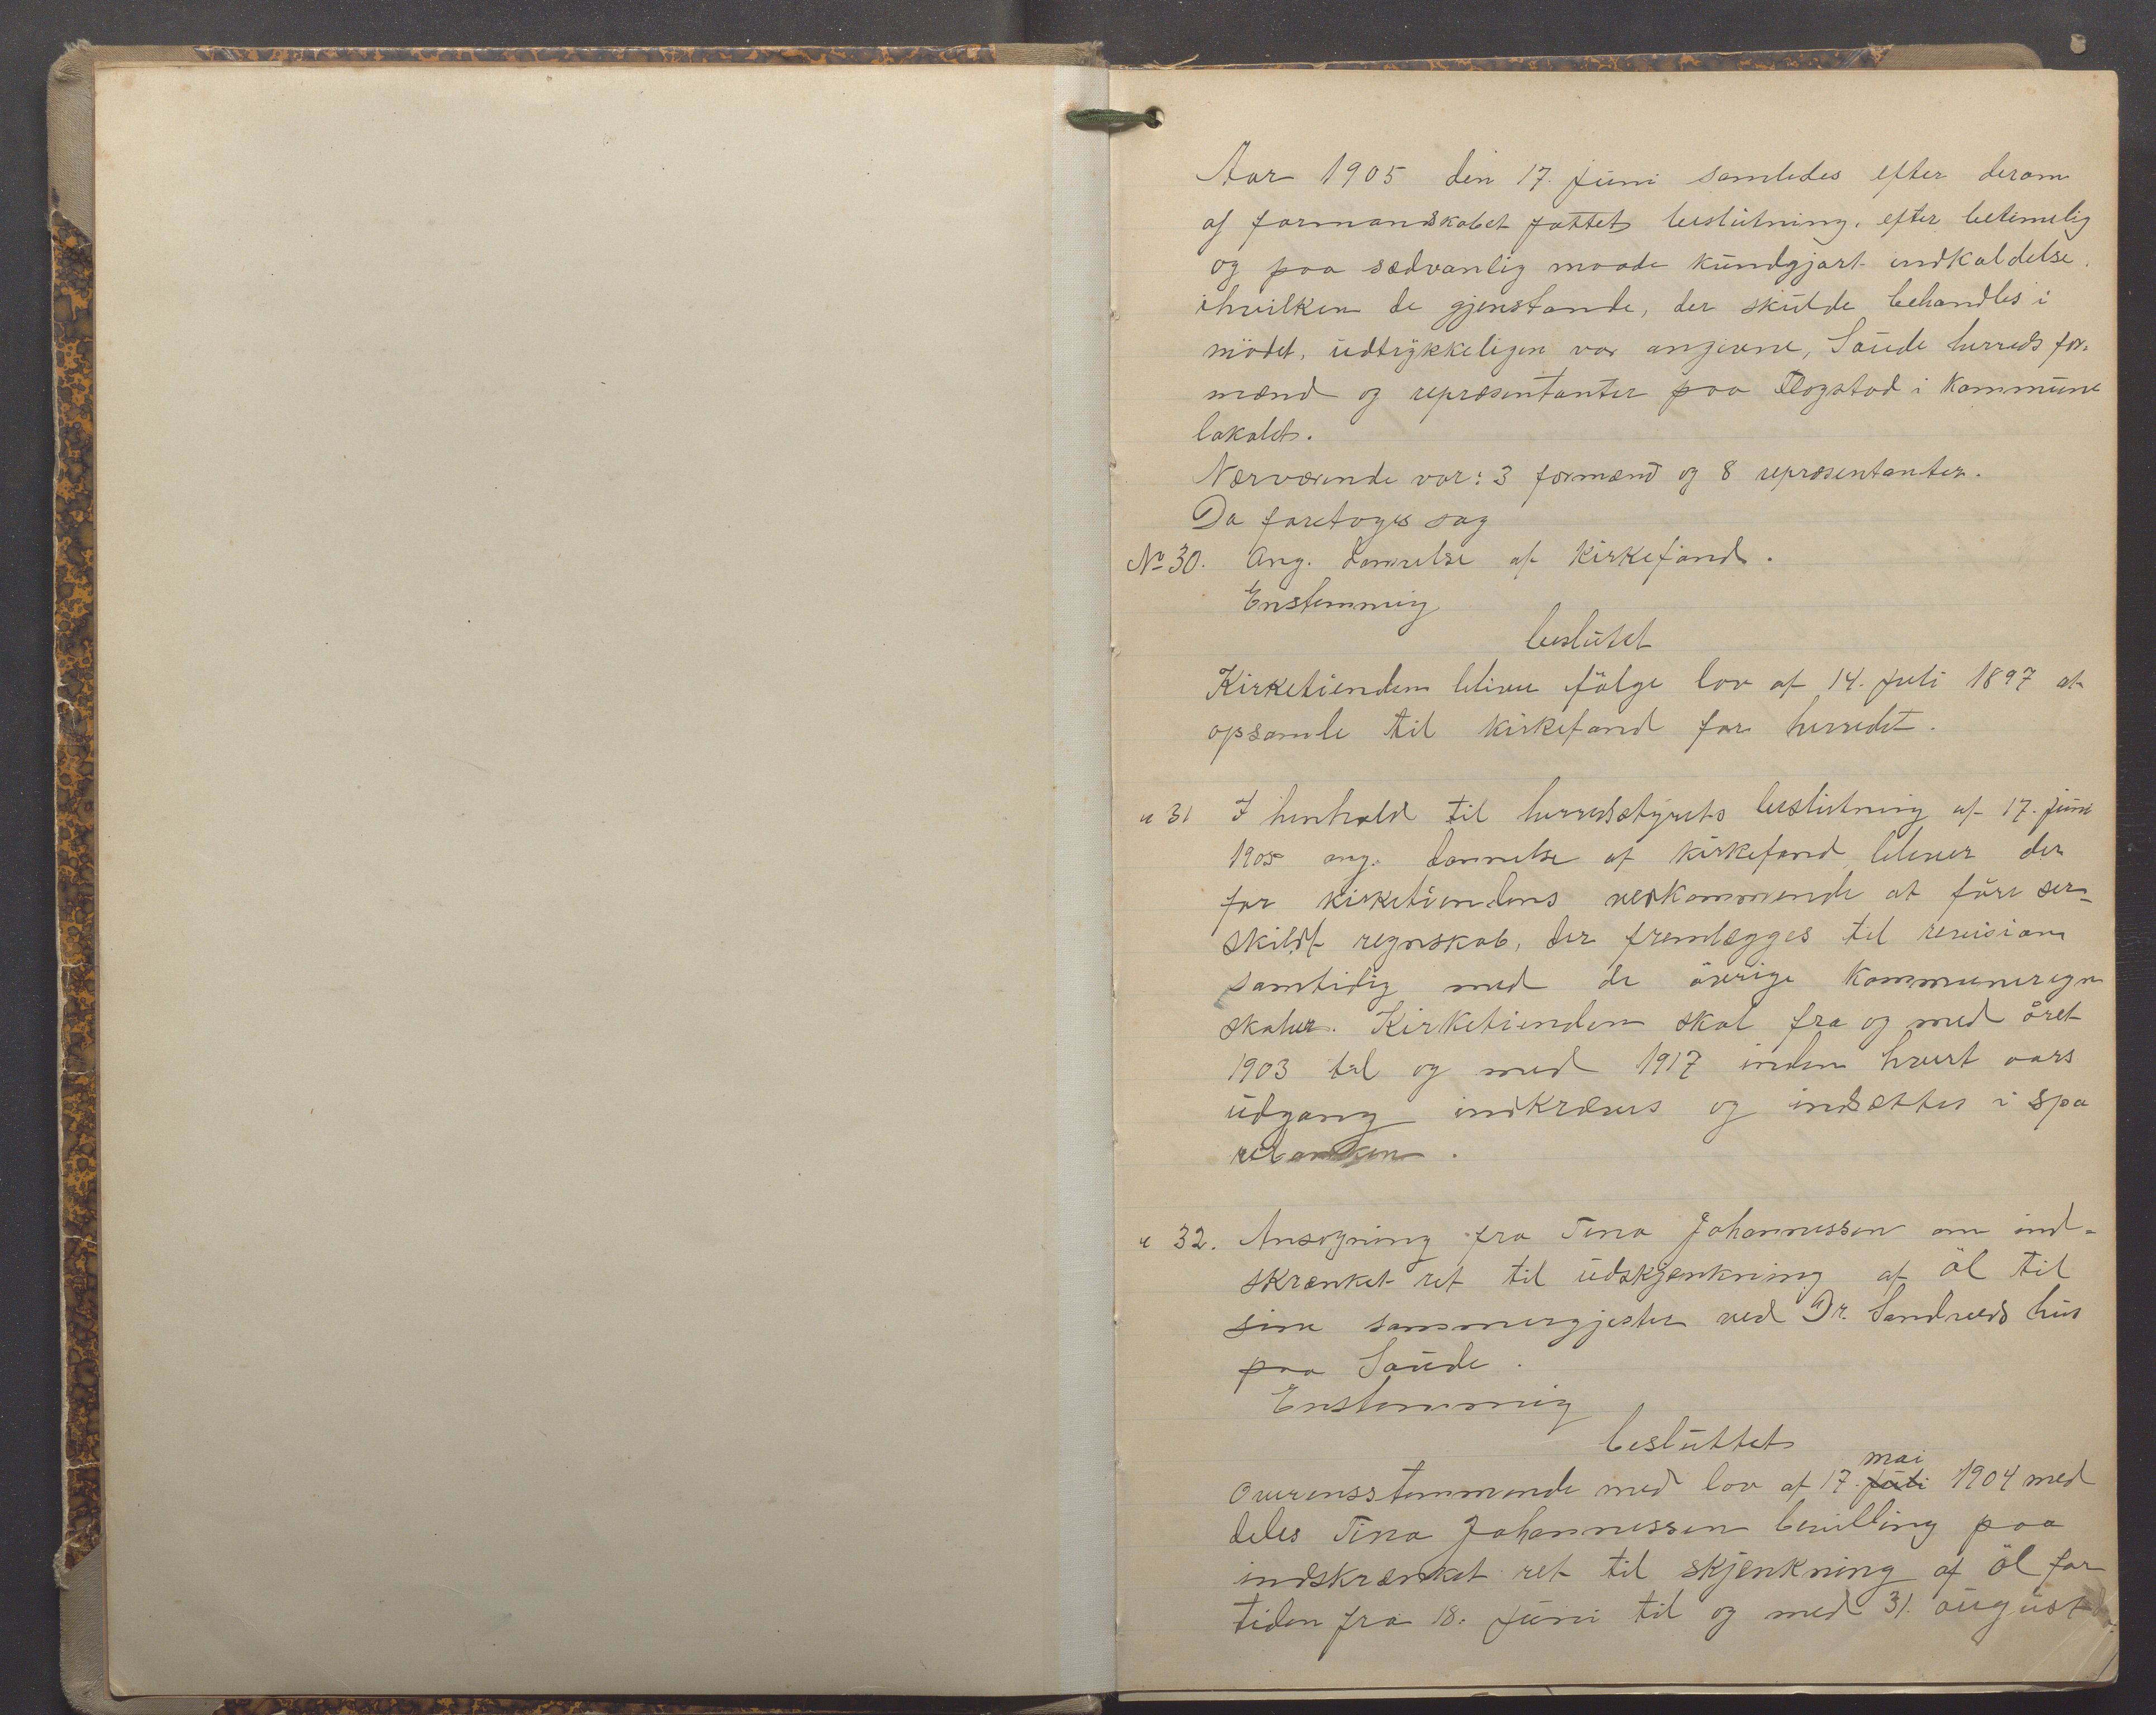 Aar 1905 den 17. juni samledes efter derom
af formandskabet fattet beslutning, efter betimelig
og paa sædvanlig maade kundgjort indkaldelse,
i hvilken de gjenstande, der skulde behandles i
mödet, udtrykkeligen var angivne, Saude herreds for-
mænd og repræsentanter paa i kommune
lokalet.
Nærværende var: 3 formænd og 8 repræsentanter.
Da foretoges sag
No 30. Ang. dannelse af kirkefond.
Enstemmig
beslutet
Kirketienden bliver ifölge lov af 14. juli 1897 at
opsamle til kirkefond for herredet.
" 31 I henhold til herredsstyrets beslutning af 17. juni
1905 ang. dannelse af kirkefond bliver der
for kirketiendens vedkommende at före sær-
skildt regnskab, der fremlægges til revision
samtidig med de övrige kommuneregn
skaber. Kirketienden skal fra og med året
1903 til og med 1917 inden hvert aars
udgang indkræves og indsættes i spa
rebanken.
" 32. Ansögning fra Tina Johannessen om ind-
skrænket ret til udskjænkning af öl til
sine sommergjester ved Dr. Sandveds hus
paa Saude.
Enstemmig
besluttet
Overensstemmende med lov af 17. juli mai 1904 med
deles Tina Johannessen bevilling paa
indskrænket ret til skjænkning af öl for
tiden fra 18. juni til og med 31. august